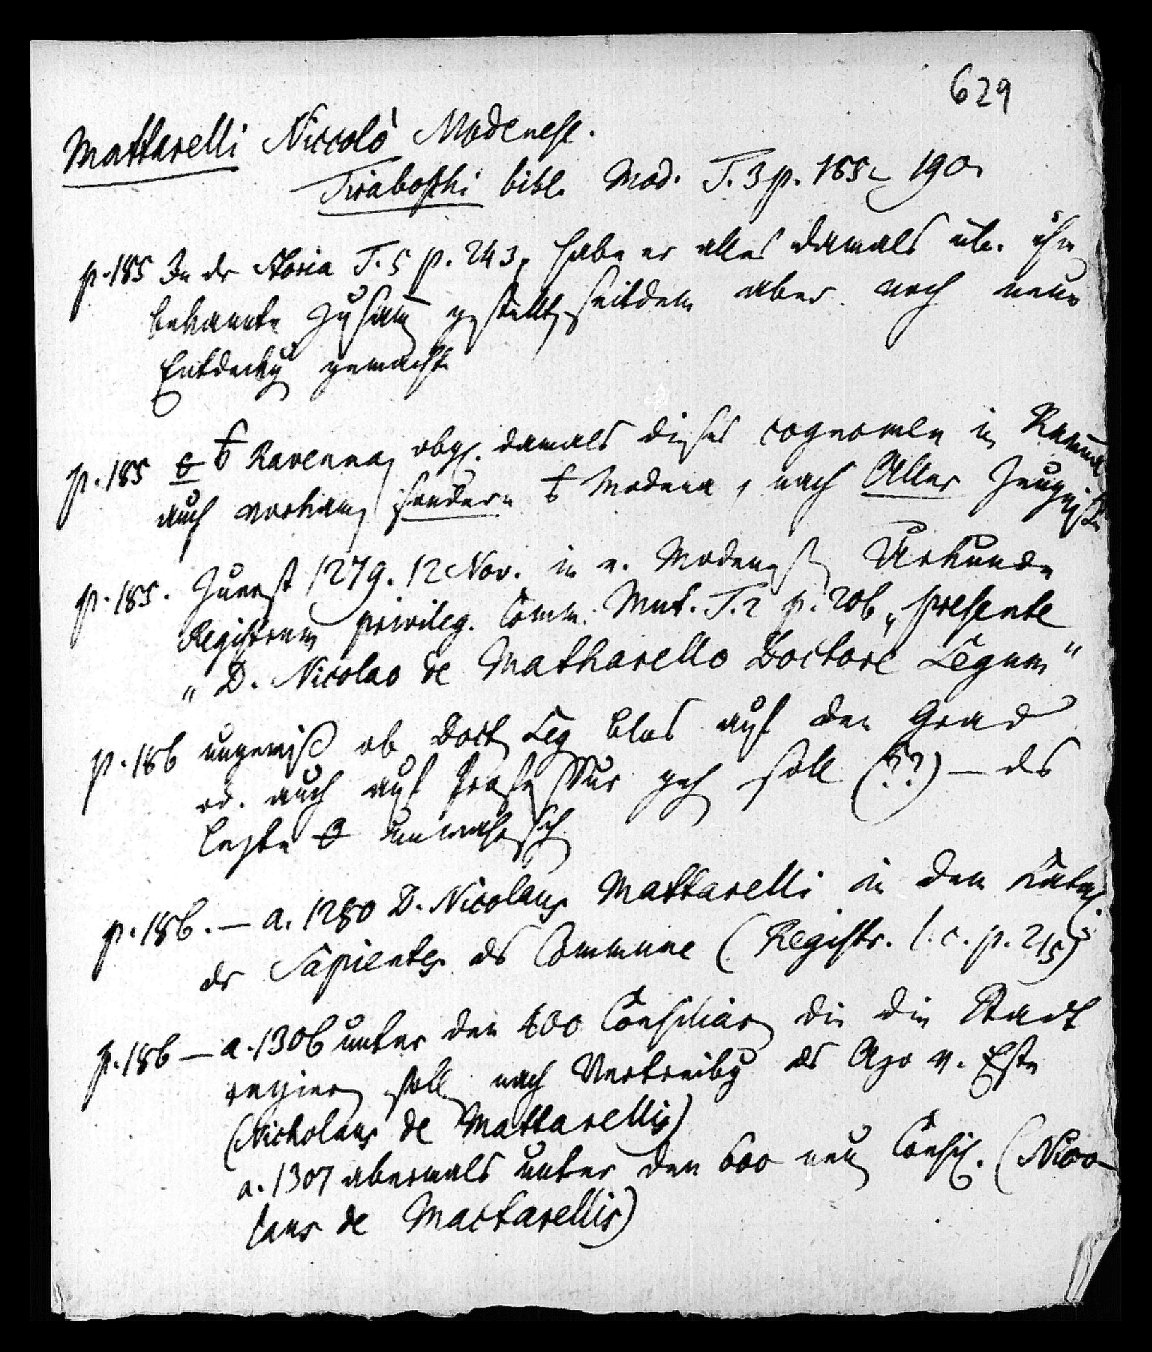 629
Mattarelli Niccolò Modenese.
Tiraboschi bibl. Mod. T. 3 p. 185 – 190.
p. 185 In der Storia T. 5 p. 243, habe er alles damals üb. ihn
bekannte zusam gestellt, seitdem aber noch neue
Entdeckg gemacht
p. 185 Ravenna, obgl. damals dieses cognomen in Ravenna
auch vorhan, sondern Modena, nach Aller Zeugniß
p. 185. Zuerst 1279. 12 Nov. in e. Modenes. Urkunde
Registrum privileg. Comm. Mut. T. 2 p. 206 „presente
„D. Nicolao de Matharello Doctore Legum"
p. 186 ungewiß ob Doct Leg blos auf den Grad
od. auch auf Professur geh soll (??) – das
lezte unwahrsch
p. 186. – a. 1280 D. Nicolaus Mattarelli in dem
der Sapientes des Commune (Registr. l. c. p. 215)
p. 186 – a. 1306 unter den 400 Consiliar die die Stadt
regier soll nach Vertreibg des Azo v. Este
(Nicholaus de Mattarellis)
a. 1307 abermals unter den 600 neu Consil. (Nico-
laus de Mactarellis)